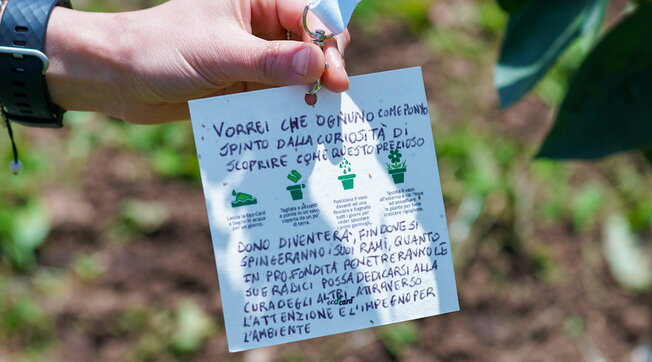 VORREI CHE OGNUNO COME PONY
SPINTO DALLA CURIOSITÀ DI
SCOPRIRE COME QUESTO PREZIOSO
Lascia la Eco-Card
a bagno in acqua
per un giorno.
Tagliala a pezzetti
e ponila in un vaso,
coperta da un po'
di terra.
Posiziona il vaso
davanti ad una
finestra e bagnalo
tutti i giorni per
veder spuntare
i primi germogli.
Sposta il vaso
all'esterno e
ad annaffiare
le piante per farle
crescere rigogliose.
DONO DIVENTERÀ, FIN DOVE SI
SPINGERANNO I SUOI RAMI, QUANTO
IN PROFONDITÀ PENETRERANNO LE
SUE RADICI POSSA DEDICARSI ALLA
CURA DEGLI ALTRI ATTRAVERSO
eco card
L'ATTENZIONE E L'IMPEGNO PER
L'AMBIENTE